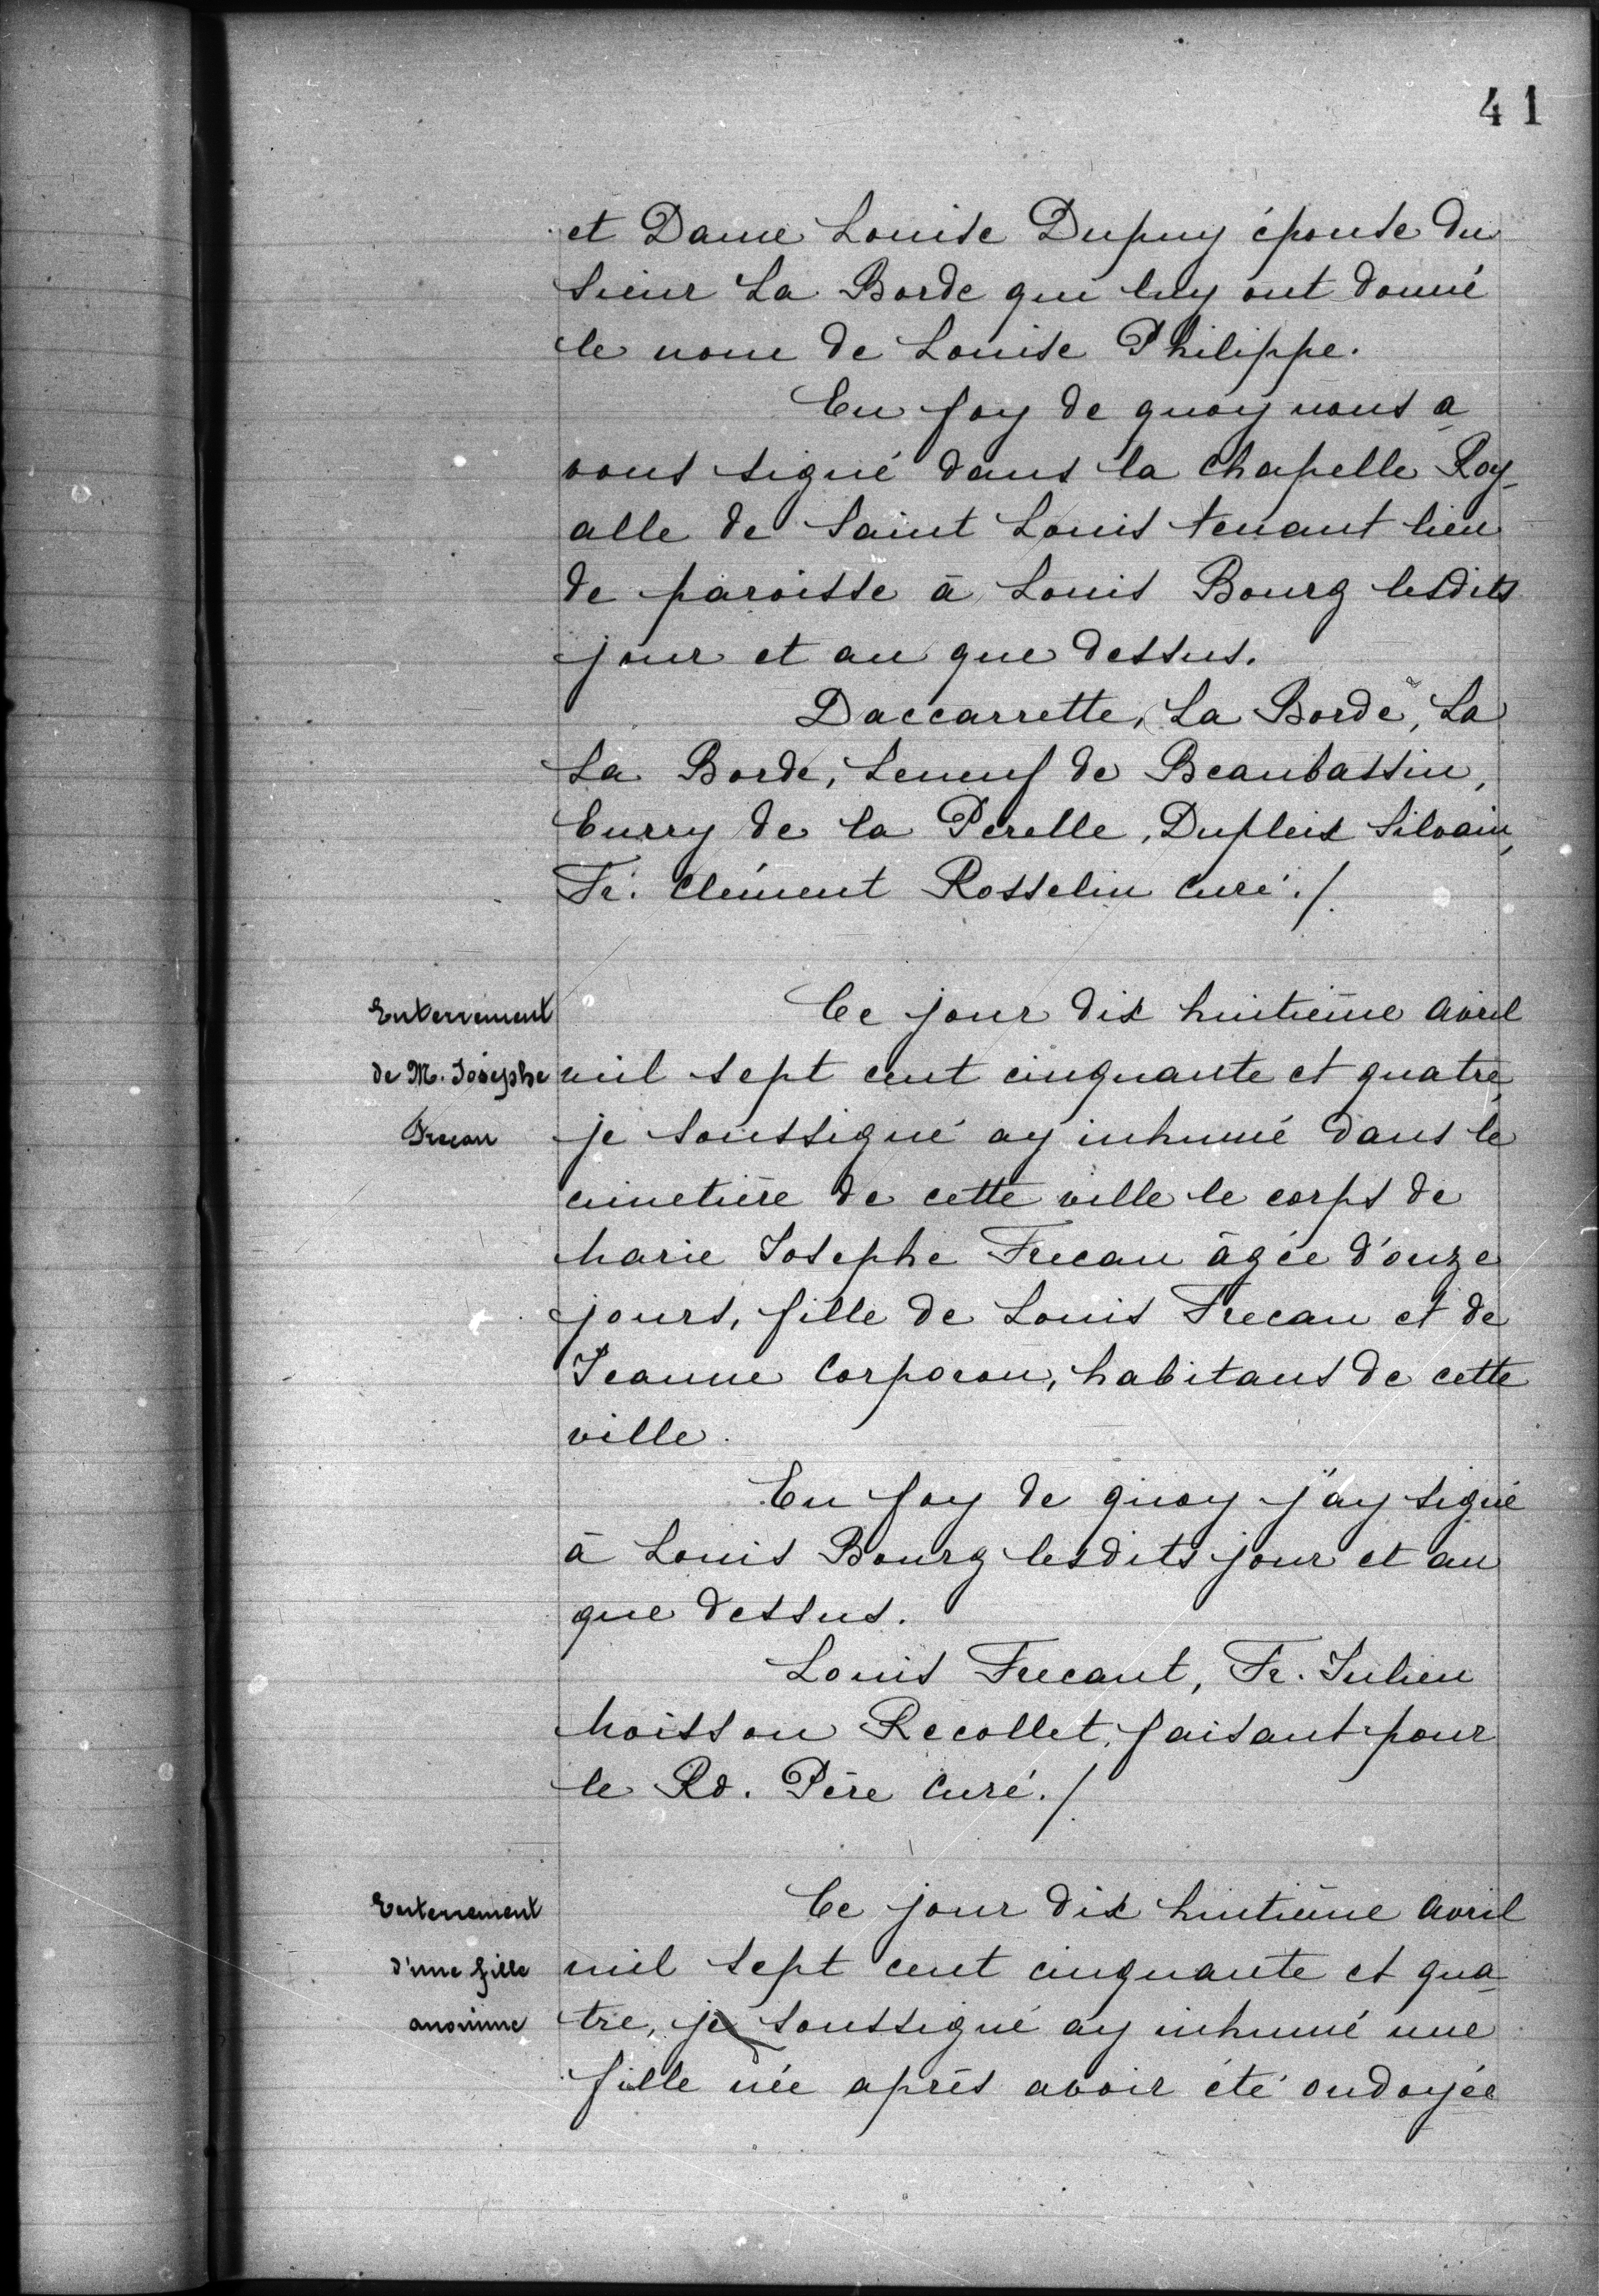 41
et Dame Louise Dupuy épouse du
Sieur La Borde qui luy ont donné
le nom de Louise Philippe.
En foy de quoy nous a
vons signé dans la chapelle Roy-
alle de Saint Louis tenant lieu
de paroisse à Louis Bourg lesdits
jour et an que dessus.
Daccarrette, La Borde, La
La Borde, Leneuf de Beaubassin,
Eurry de la Perelle, Dupleix Silvain,
Fr. Clément Rosselin Curé./.
Enterrement
de M. Josephe
Frecan
Ce jour dix huitième Avril
mil sept cent cinquante et quatre,
je soussigné ay inhumé dans le
cimetière de cette ville le corps de
Marie Josephe Frecau âgée d'onze
jours, fille de Louis Frecau et de
Jeanne Corporon, habitans de cette
ville.
En foy de quoy j'ay signé
à Louis Bourg lesdits jour et an
que dessus.
Louis Frecaut, Fr. Julien
Moisson Recollet, faisant pour
le Rd. Père Curé./.
Enterrement
d'une fille
anonime
Ce jour dix huitième Avril
mil sept cent cinquante et qua-
tre, je soussigné ay inhumé une
fille née après avoir été ondoyée